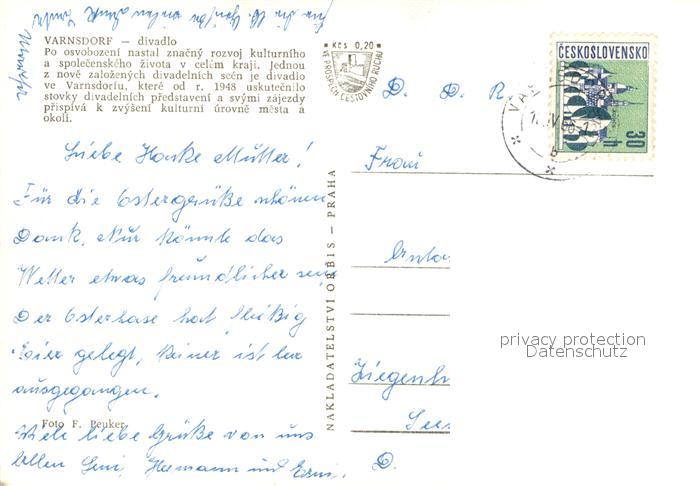 VARNSDORF — divadlo
Po osvobození nastal značný rozvoj kulturního
a společenského života v celém kraji. Jednou
z nově založených divadelních scén je divadlo
ve Varnsdorfu, které od r. 1948 uskutečnilo
stovky divadelních představení a svými zájezdy
přispívá k zvýšení kulturní úrovně města a
okolí.
Kčs 0,20
VE PROSPĚCH CESTOVNÍHO RUCHU
ČESKOSLOVENSKO
30
h
D. D. R.
Liebe Hanke Mutter!
Für die Ostergrüße schönen
Dank. Nur könnte das
Wetter etwas freundlicher sein
Der Osterhase hat fleißig
Eier gelegt, keiner ist leer
ausgegangen.
Foto F. Peuker
Viele liebe Grüße von uns
allen Hermann und
NAKLADATELSTVÍ ORBIS — PRAHA
Frau
Ziegenh
D.
privacy protection
Datenschutz